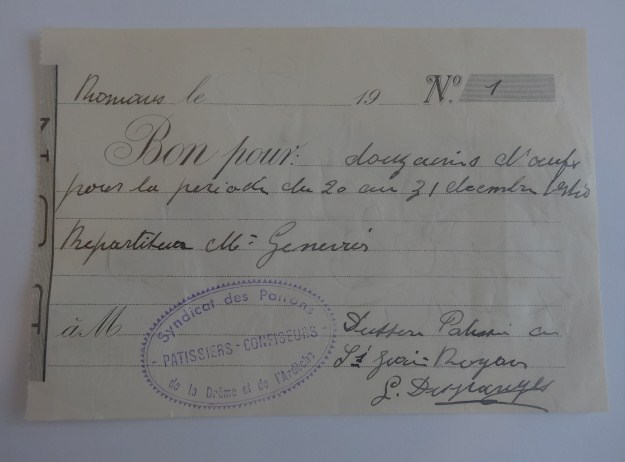 Romans le 19 N° 1
Bon pour: douzaines d'oeufs
pour la periode du 20 au 31 decembre 1940
Repartiteur Mr
à M
Syndicat des Patrons
- PATISSIERS - CONFISEURS -
de la Drôme et de l'Ardèche
St Jean Royans